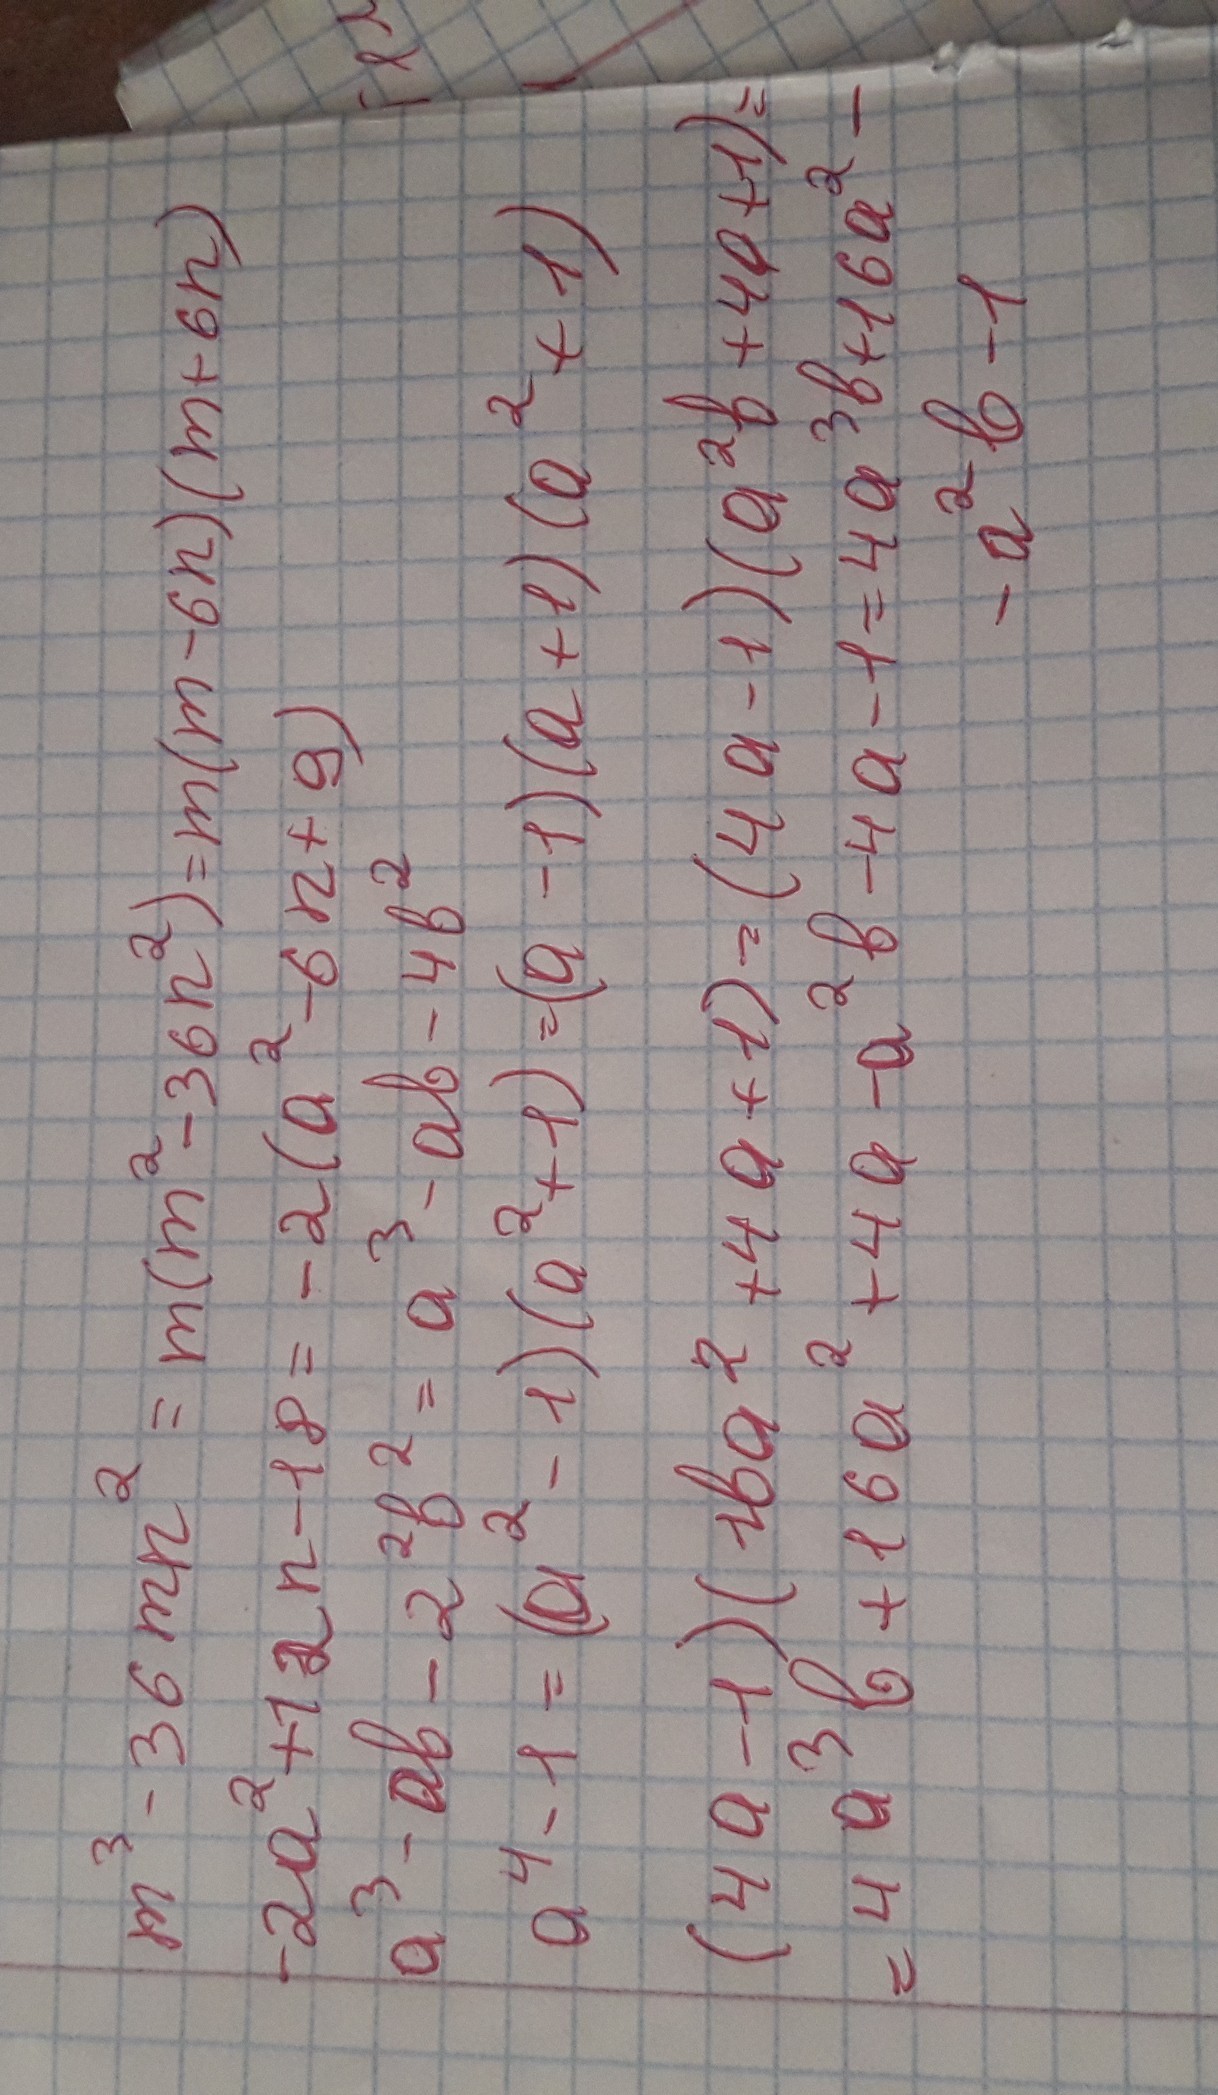 m³ - 36mn² = m(m² - 36n²) = m(m - 6n)(m + 6n)
-2a² + 12n - 18 = -2(a² - 6n + 9)
a³ - ab - 2²b² = a³ - ab - 4b²
a⁴ - 1 = (a² - 1)(a² + 1) = (a - 1)(a + 1)(a² + 1)
(4a - 1)(1ba² + 4a + 1) = (4a - 1)(a²b + 4a + 1) =
= 4a³b + 16a² + 4a - a²b - 4a - 1 = 4a³b + 16a² -
- a²b - 1